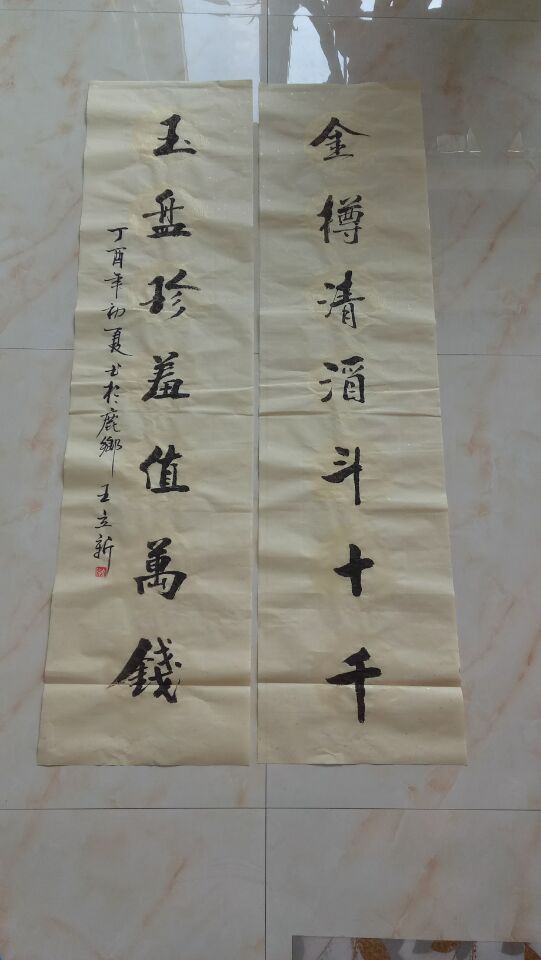 金樽清酒斗十千
玉盘珍羞值萬錢
丁酉年初夏书於鹿鄉 王立新